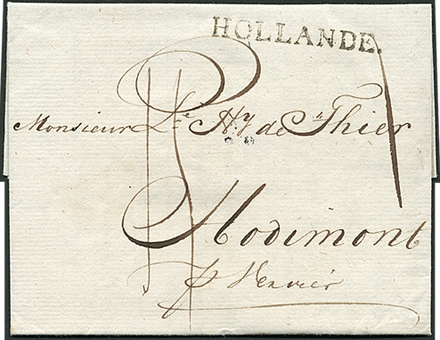 HOLLANDE.
Monsieur Le Hy de Thier
Hodimont
p Vervié